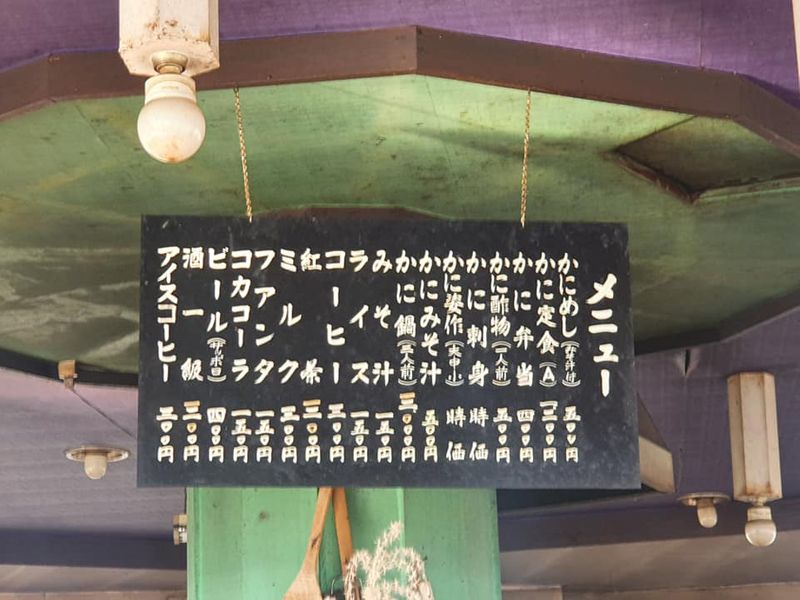 メニュー
かにめし 五〇〇円
かに定食(A) 一三〇〇円
かに弁当 四〇〇円
かに酢物(一人前) 五〇〇円
かに刺身 時価
かに姿作(大中小) 時価
かにみそ汁 五〇〇円
かに鍋(三人前) 三〇〇〇円
みそ汁 一五〇円
ライス 一五〇円
コーヒー 三〇〇円
紅茶 三〇〇円
ミルク 三〇〇円
ファンタ 一五〇円
コカコーラ 一五〇円
ビール(サッポロ) 四〇〇円
酒一級 三〇〇円
アイスコーヒー 三〇〇円